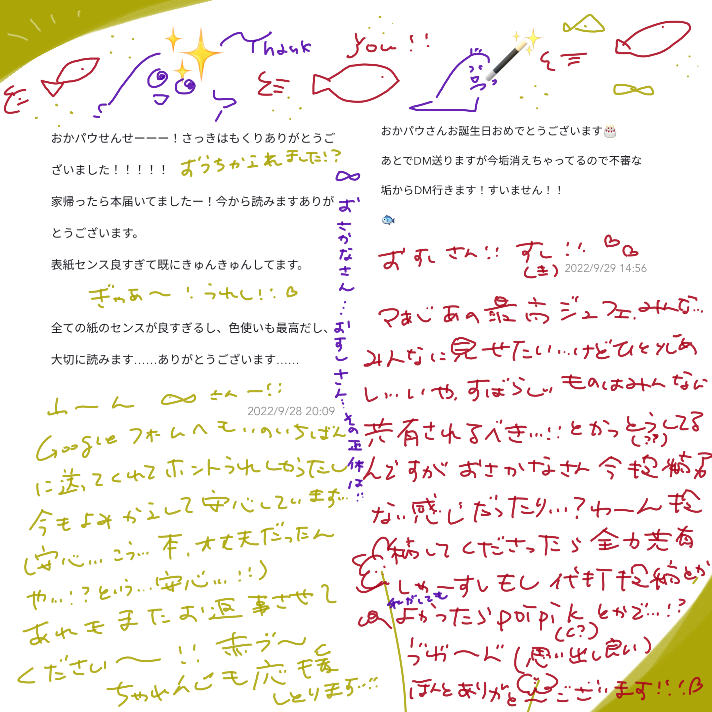 Thank you!!
おかパウせんせーーー！さっきはもくりありがとうご
ざいました！！！！！
おうちかえれました!?
家帰ったら本届いてましたー！今から読みますありが
とうございます。
表紙センス良すぎて既にきゅんきゅんしてます。
ぎゃあ〜！うれし!!
全ての紙のセンスが良すぎるし、色使いも最高だし、
大切に読みます……ありがとうございます……
さん一!!
2022/9/28 20:09
Googleフォームへも いのいちばん
に送ってくれて ホントうれしかったし
今もよみかえして安心しています…
(安心… こう… 本、大丈夫だったん
や…!? という… 安心…!!)
あれもまたお返事させて
ください〜!! 赤ブ〜
ちゃれんじも応援
しとります…!!
おさかなさん… おすしさん… その正体は!!
おかパウさんお誕生日おめでとうございます🎂
あとでDM送りますが今垢消えちゃってるので不審な
垢からDM行きます！すいません！！
🐟
おすしさん!! すし!!
2022/9/29 14:56
マぁじあの最高ジュフェ、みんな…
みんなに見せたい…けどひとりじめ
し…いや、すばらしい ものはみんなに
共有されるべき…!! とかっとうしてる
(??)
んですが おさかなさん 今投稿し
ない感じだったり…? わーん 投
稿してくださったら 全力共有
しゃーすしもし 代打投稿とか
それがしでも
よかったら poipik とかで…!?
(c?)
づが〜ん (思い出し良い)
ほんとありがと〜ございます!!